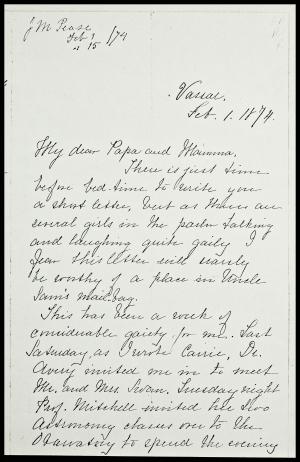 J M Pease
Feb 1 /74
" 15
Vassar.
Feb. 1. 1874.
My dear Papa and Mamma,
There is just time
before bed-time to write you
a short letter, but as there are
several girls in the parlor talking
and laughing quite gaily I
fear this letter will scarcely
be worthy of a place in Uncle
Sam's mail-bag.
This has been a week of
considerable gaiety for me. Last
Saturday, as I wrote Carrie, Dr.
Avery invited me in to meet
Mr. and Mrs. Swan. Tuesday night
Prof. Mitchell invited her two
astronomy classes over to the
Observatory to spend the evening